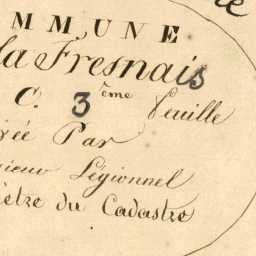 MMUNE
la Fresnais
C. 3ème feuille
Par
Légionnel
du Cadastre